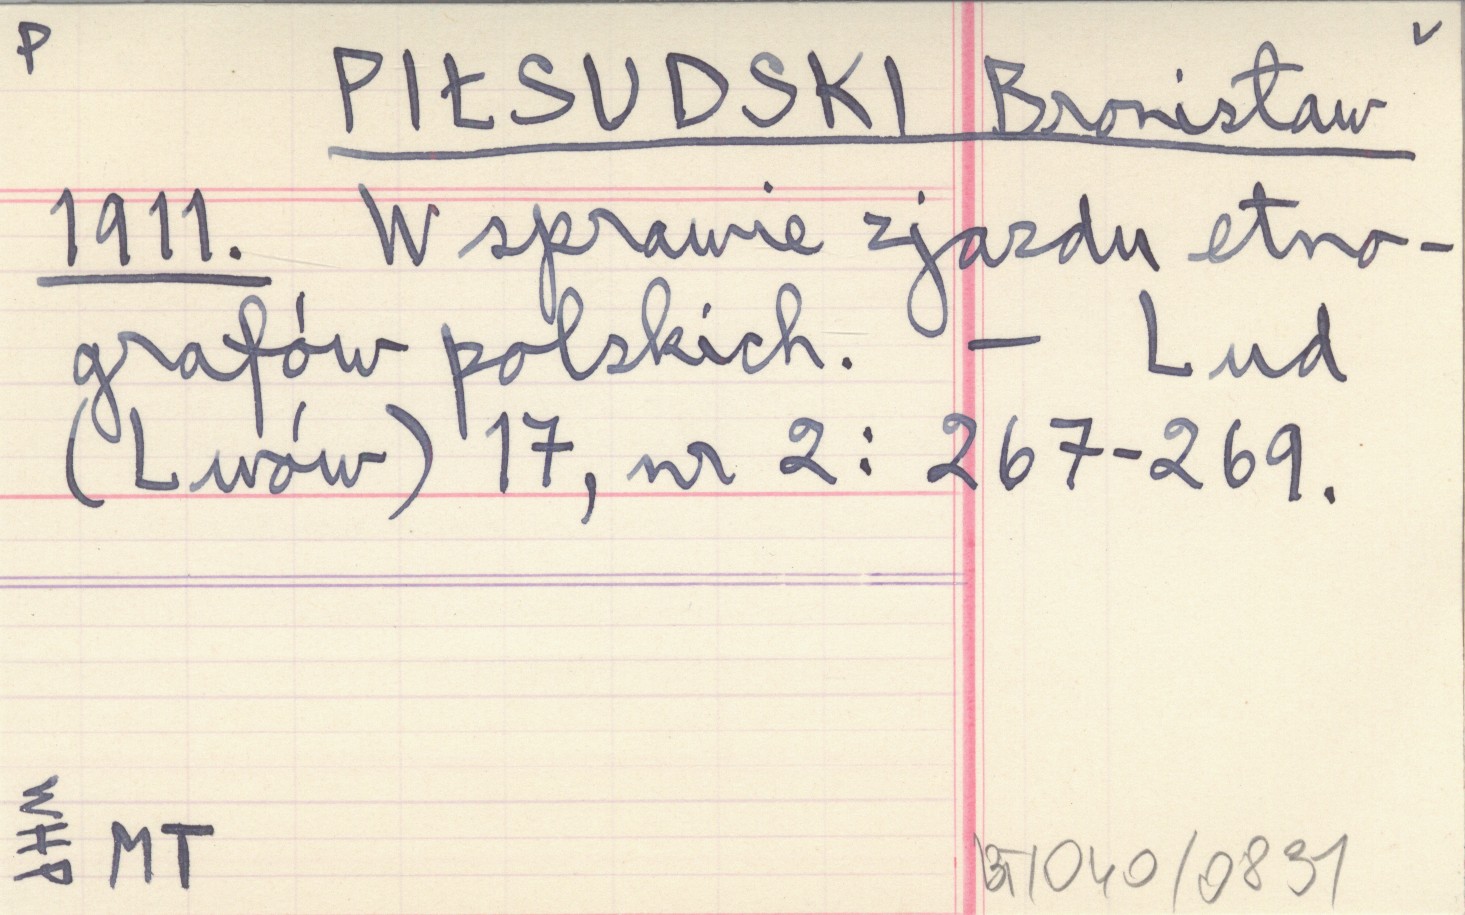 P
v
PIŁSUDSKI Bronisław
1911. W sprawie zjazdu etno-
grafów polskich. – Lud
(Lwów) 17, nr 2: 267-269.
WHP
MT
BT/040/0831